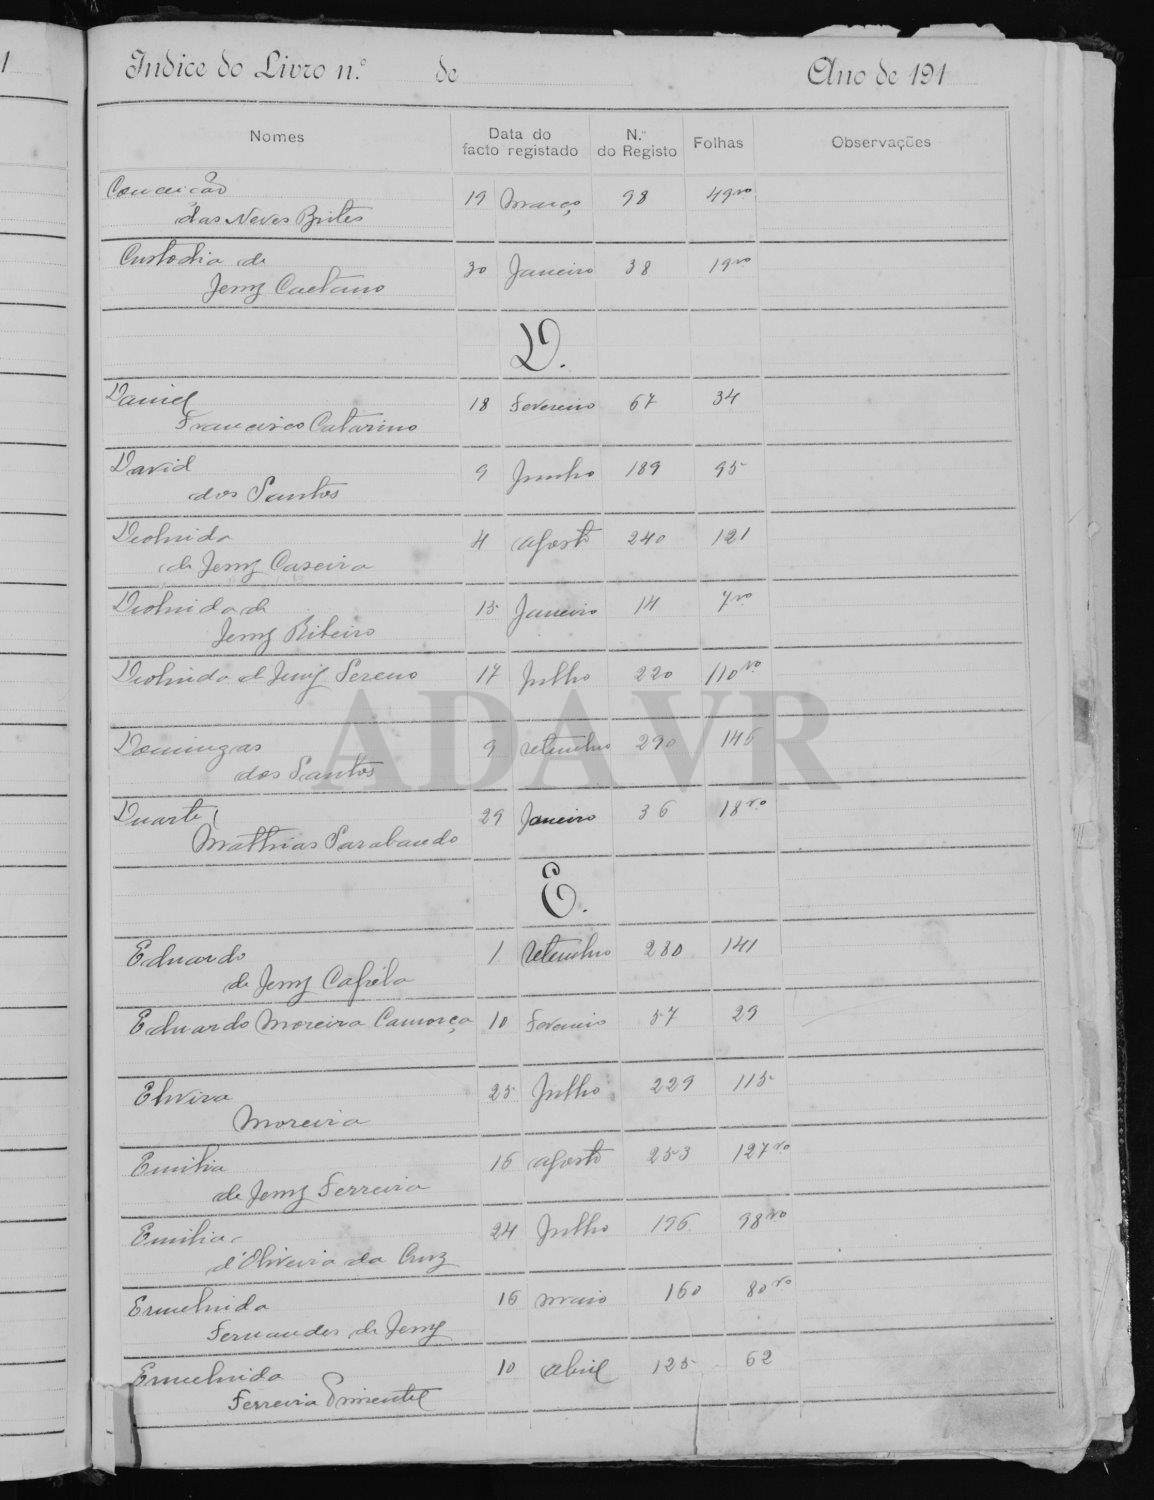 Indice do Livro n.º de Ano de 191
Nomes Data do facto registado N.º do Registo Folhas Observações
Conceição 19 Março 98 49vo
das Neves Brites
Custodia de 30 Janeiro 38 19vo
Jesus Caetano
D.
Daniel 18 Fevereiro 67 34
Francisco Catarino
David 9 Junho 189 95
dos Santos
Deolinda 4 Agosto 240 121
de Jesus Caseira
Deolinda de 15 Janeiro 14 7vo
Jesus Ribeiro
Deolinda de Jesus Sereno 17 Julho 220 110vo
Domingas 9 Setembro 290 146
dos Santos
Duarte 29 Janeiro 36 18vo
Mathias Sarabando
E.
Eduardo 1 Setembro 280 141
de Jesus
Eduardo Moreira Camorça 10 Fevereiro 57 29
Elvira 25 Julho 229 115
Moreira
Emilia 16 Agosto 253 127vo
de Jesus Ferreira
Emilia 24 Julho 196 98vo
d'Oliveira da Cruz
Ermelinda 16 Maio 160 80vo
Fernandes de Jesus
Ermelinda 10 Abril 125 62
Ferreira Pimentel
ADAVR